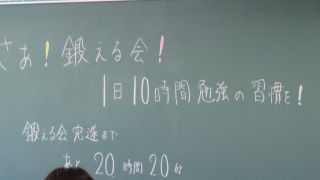 さあ！鍛える会！
1日10時間勉強の習慣を！
鍛える会完遂まで
あと 20時間20分